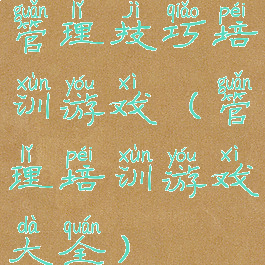 guǎn lǐ jì qiǎo péi
管理技巧培
xùn yóu xì guǎn
训游戏（管
lǐ péi xùn yóu xì
理培训游戏
dà quán
大全）